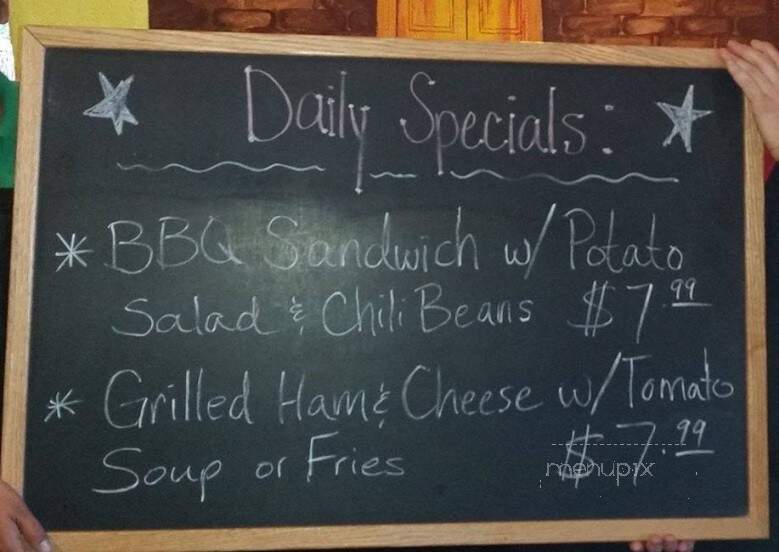 Daily Specials:
* BBQ Sandwich w/ Potato
Salad & Chili Beans $7.99
* Grilled Ham & Cheese w/ Tomato
Soup or Fries $7.99
menupix